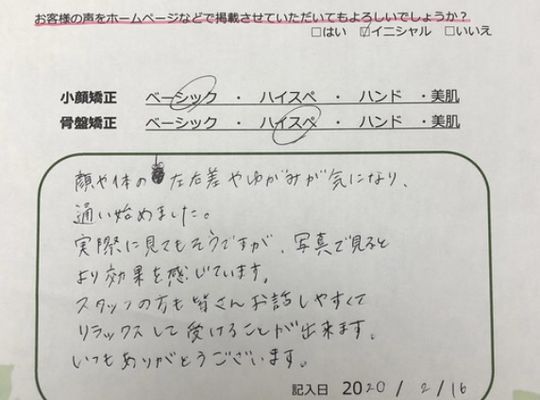 お客様の声をホームページなどで掲載させていただいてもよろしいでしょうか？
□はい ☑イニシャル □いいえ
小顔矯正 ベーシック ・ ハイスペ ・ ハンド ・美肌
骨盤矯正 ベーシック ・ ハイスペ ・ ハンド ・美肌
顔や体の左右差やゆがみが気になり、
通い始めました。
実際に見てもそうですが、写真で見ると
より効果を感じています。
スタッフの方も皆さんお話しやすくて
リラックスして受けることが出来ます。
いつもありがとうございます。
記入日 2020 / 2 / 16